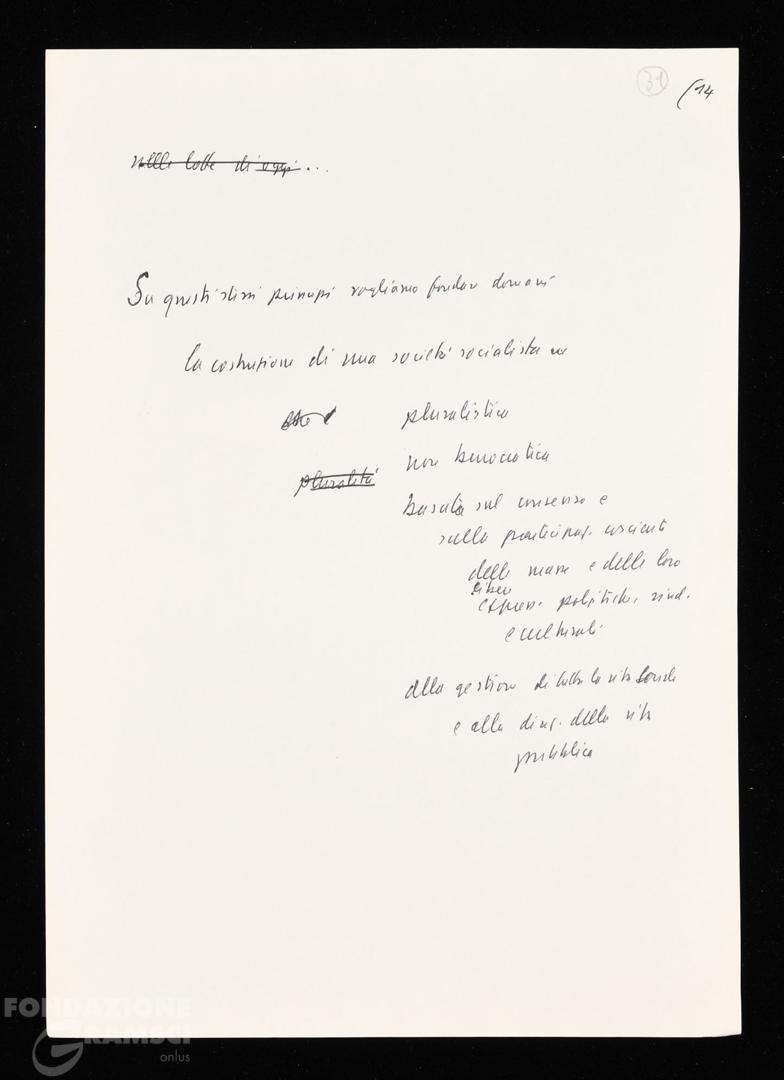 31
(14
nelle lotte di oggi...
Su questi stessi principi vogliamo fondare domani
la costruzione di una società socialista
pluralistica
non burocratica
pluralità
basata sul consenso e
sulla partecipaz. cosciente
delle masse e delle loro
libere
espress. politiche, sind.
e culturali
alla gestione di tutta la vita sociale
e alla direz. della vita
pubblica
FONDAZIONE
GRAMSCI
onlus